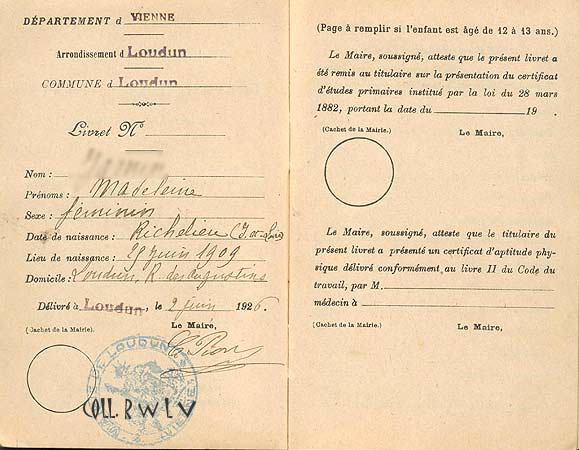 DÉPARTEMENT d VIENNE
Arrondissement d Loudun
COMMUNE d Loudun
Livret N°
Nom :
Prénoms : Madeleine
Sexe : féminin
Date de naissance : Richelieu (I. et Loire)
Lieu de naissance : 25 juin 1909
Domicile : Loudun, R. des Augustins
Délivré à Loudun, le 2 juin 1926.
(Cachet de la Mairie).
Le Maire,
DE LOUDUN
VIENNE
COLL. R W L V
(Page à remplir si l'enfant est âgé de 12 à 13 ans.)
Le Maire, soussigné, atteste que le présent livret a
été remis au titulaire sur la présentation du certificat
d'études primaires institué par la loi du 28 mars
1882, portant la date du 19 .
(Cachet de la Mairie.)
Le Maire,
Le Maire, soussigné, atteste que le titulaire du
présent livret a présenté un certificat d'aptitude phy-
sique délivré conformément au livre II du Code du
travail, par M.
médecin à
(Cachet de la Mairie).
Le Maire,